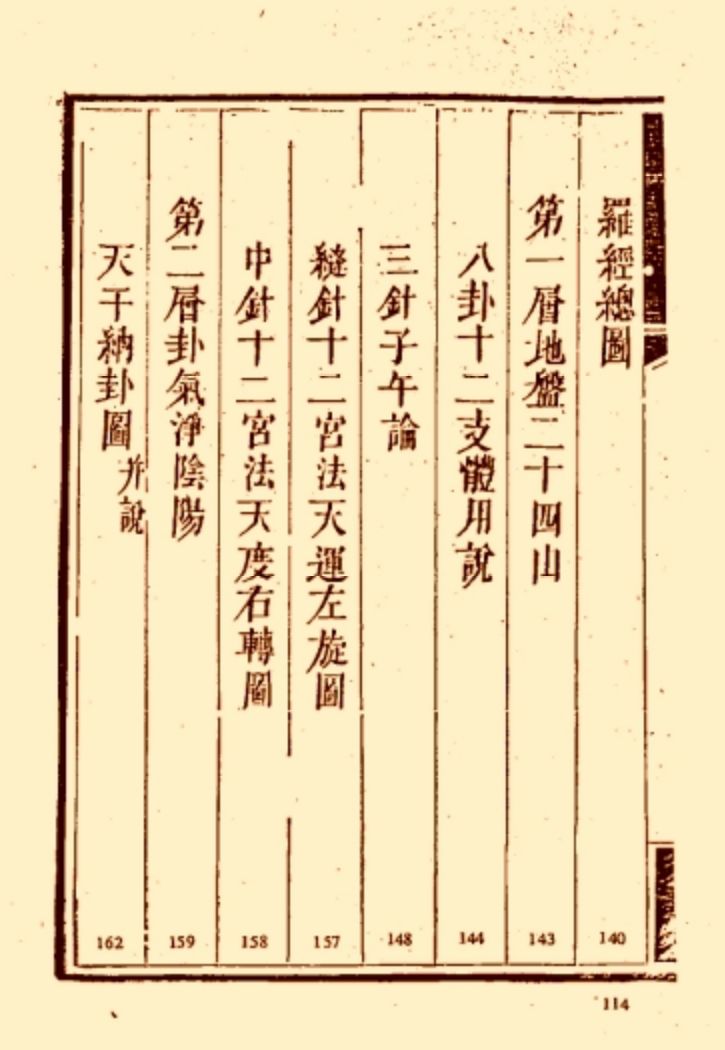 羅經總圖 140
第一層地盤二十四山 143
八卦十二支體用說 144
三針子午論 148
縫針十二宮法天運左旋圖 157
中針十二宮法天度右轉圖 158
第二層卦氣淨陰陽 159
天干納卦圖并說 162
114